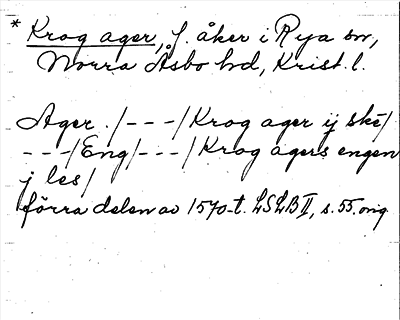 * Krog ager, f. åker i Rya sn,
Norra Åsbo hd, Krist. l.
Ager ./---/Krog ager ij ske/
---/Eng/---/Krog agers engen
j les/
förra delen av 1570-t. LSLB II, s. 55. orig